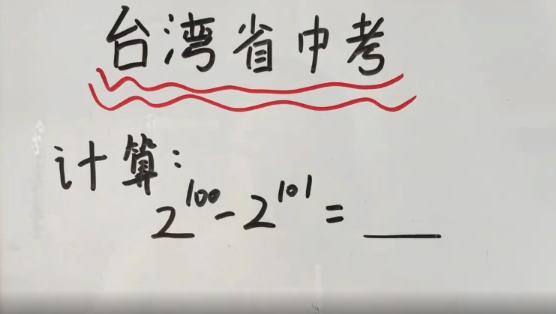 台湾省中考
计算:
2^100 - 2^101 = ___